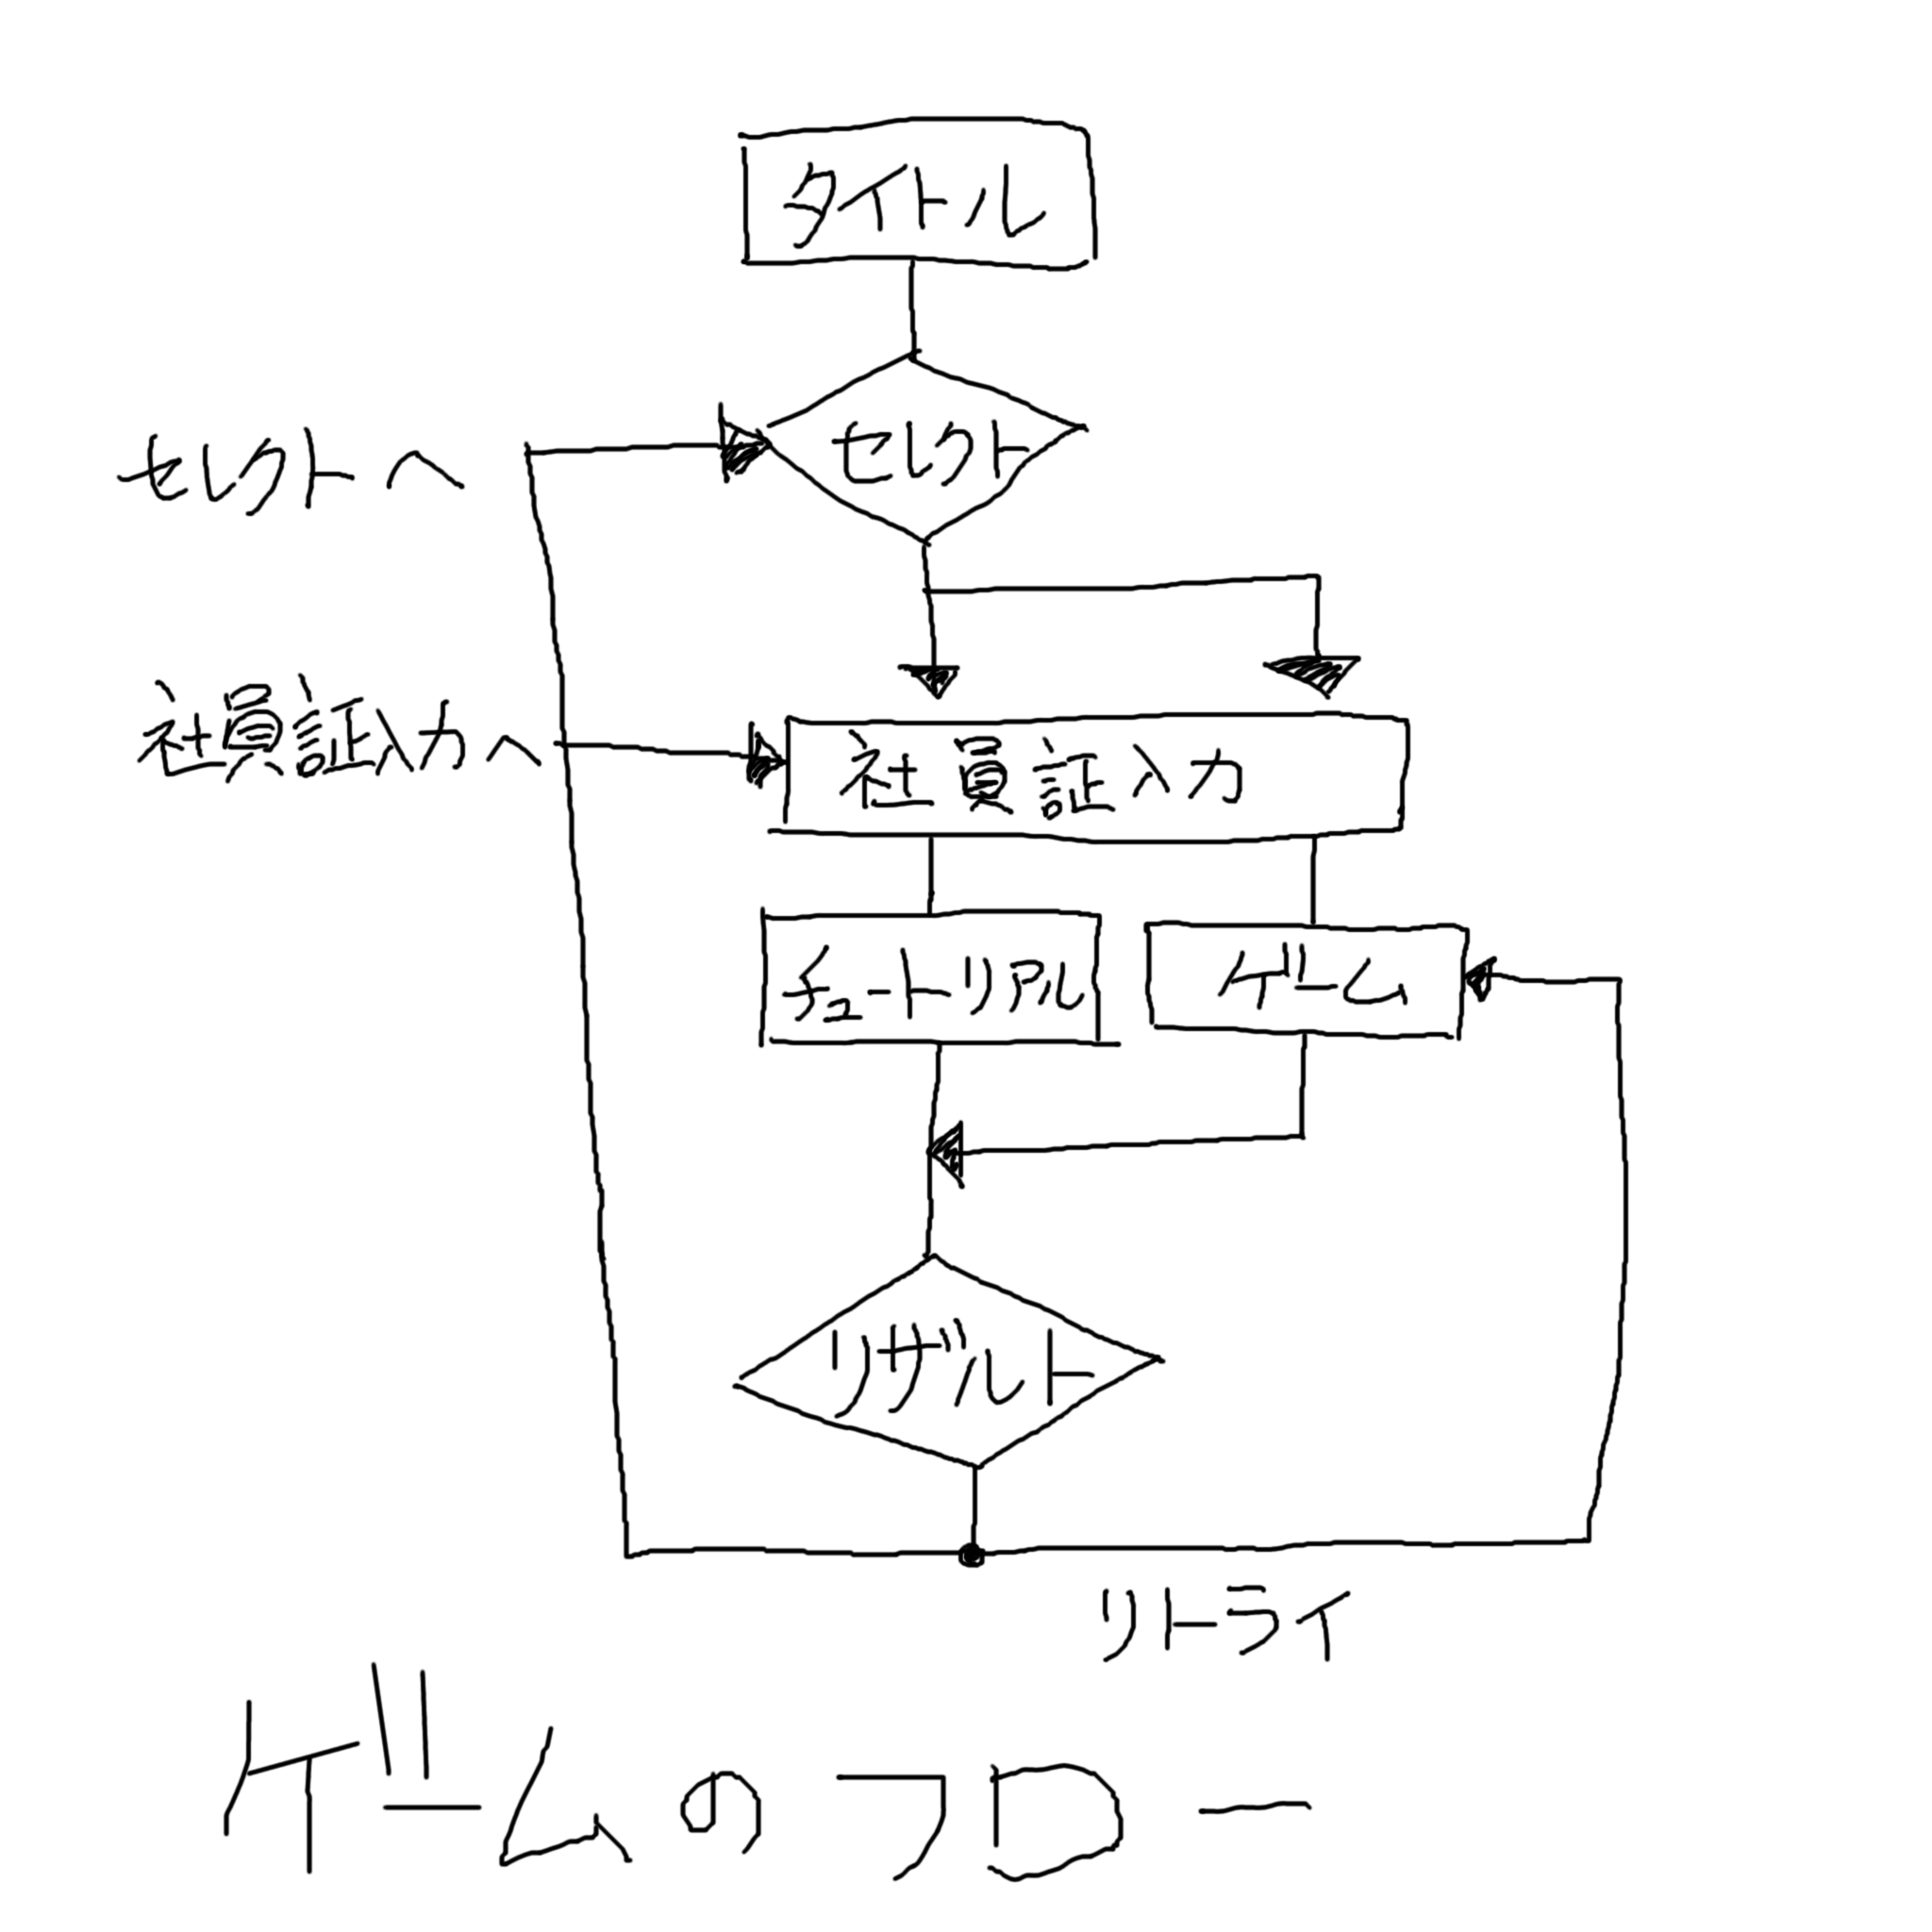 タイトル
セレクト
セレクトへ
社員証入力へ
社員証入力
チュートリアル
ゲーム
リザルト
リトライ
ゲームのフロー